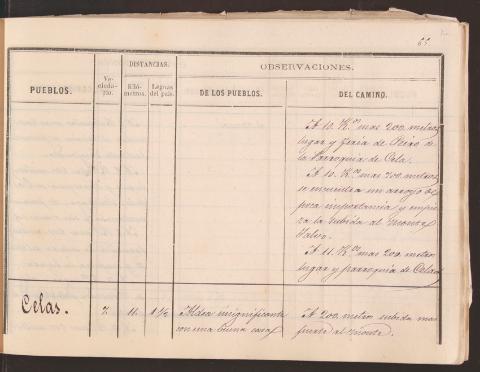 65.
DISTANCIAS.
OBSERVACIONES.
PUEBLOS.
Ve-
cinda-
rio.
Kiló-
metros.
Leguas
del país.
DE LOS PUEBLOS.
DEL CAMINO.
A 10. K.os mas 200. metros
lugar y feria de Peiro de
la Parroquia de Cela.
A 10. K.os mas 700. metros
se encuentra un arroyo de
poca importancia y empie
za la subida al monte
A 11. K.os mas 200. metros
lugar y parroquia de Celas
Celas.
7.
11.
1 1/2
Aldea insignificante
con una buena casa
A 200. metros subida mas
fuerte al monte.